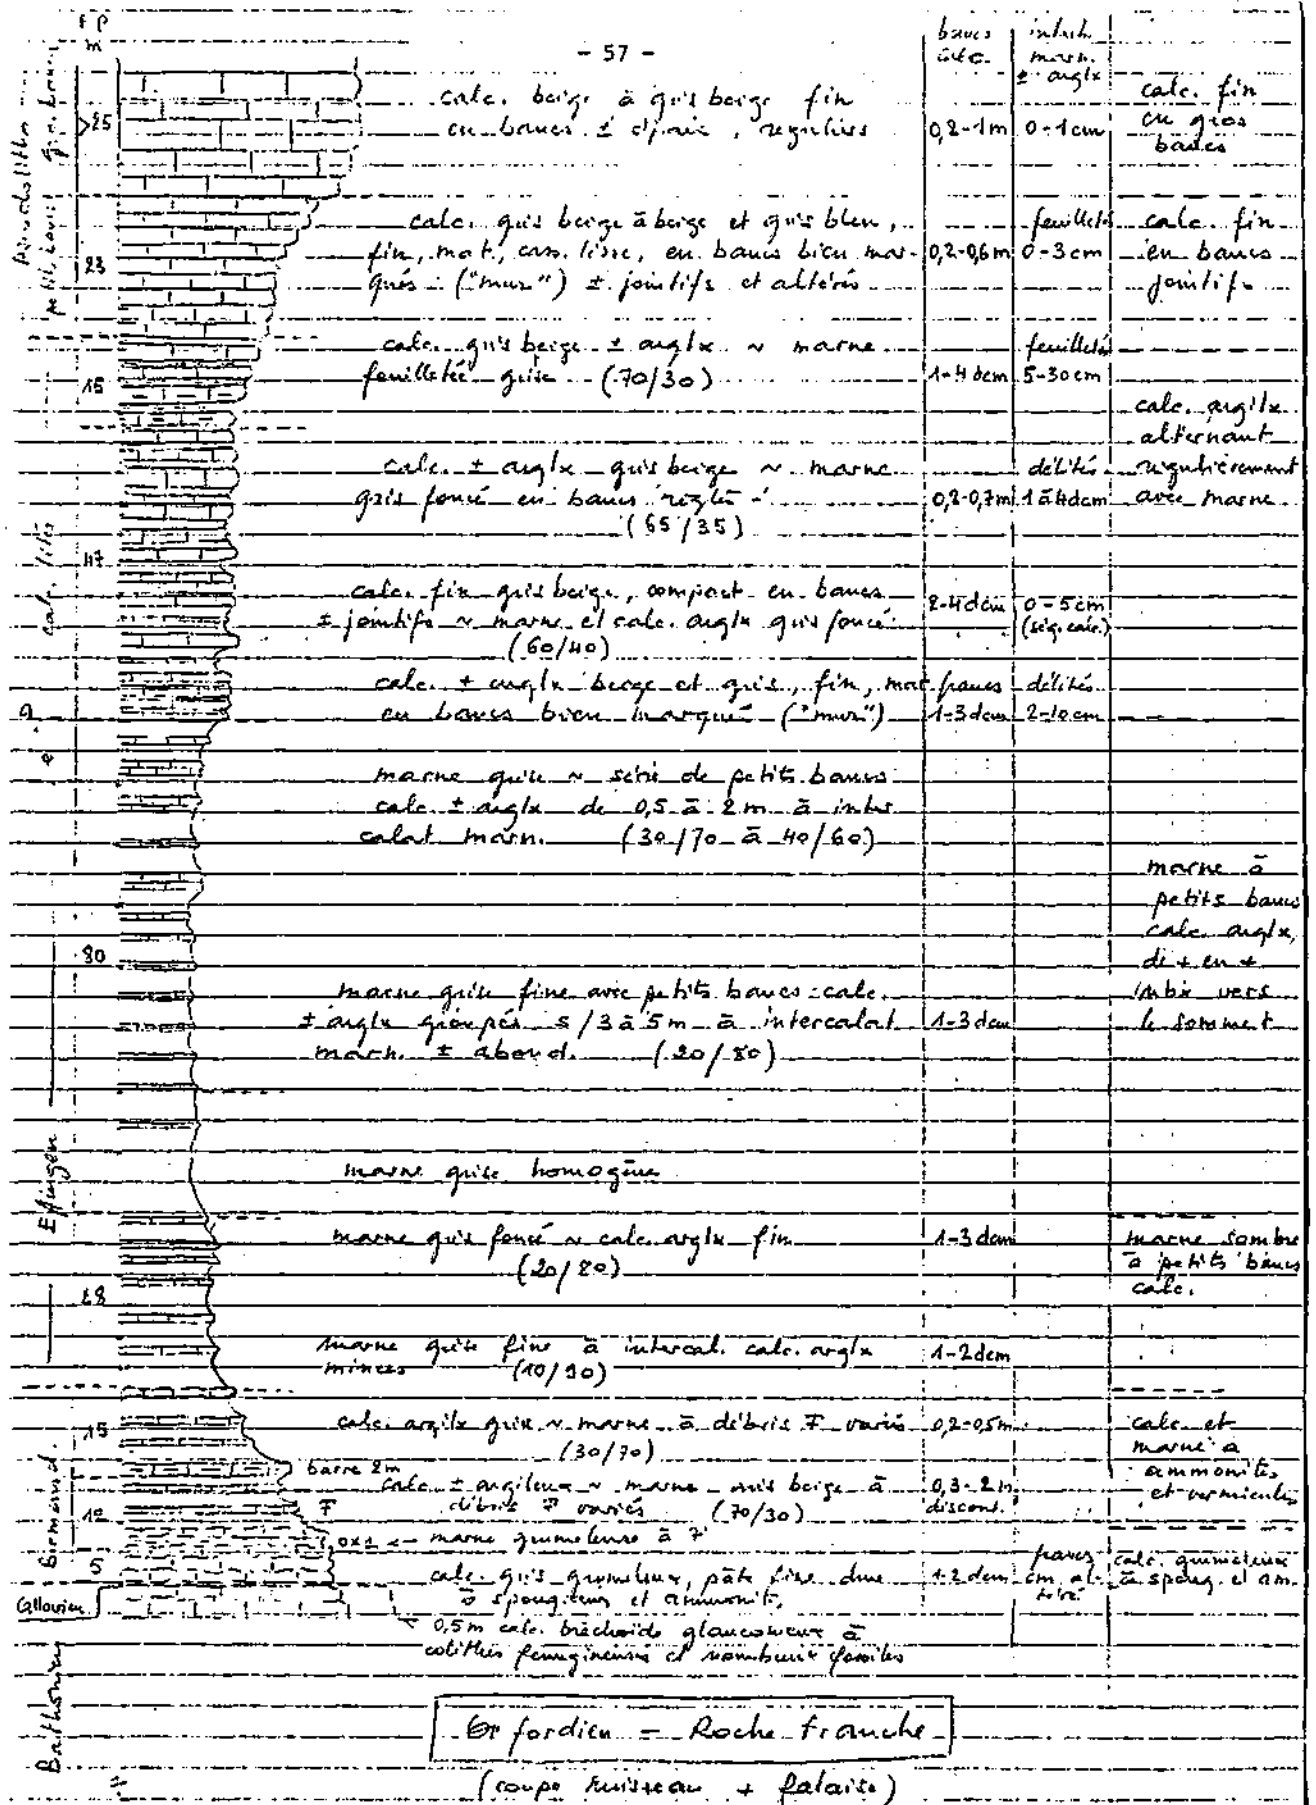 - 57 -
m
bancs
calc.
marn.
± arglx
calc. beige à gris beige fin
en bancs ± épais, réguliers
0,2-1m
0-1cm
calc. fin
en gros
bancs
>25
petits bancs
gros bancs
calc. gris beige à beige et gris bleu,
fin, mat, cass. lisse, en bancs bien mar-
qués ("mur") ± jointifs et altérés
0,2-0,6m
feuilletés
0-3cm
calc. fin
en bancs
jointifs
23
calc. gris beige ± arglx ~ marne
feuilletée grise (70/30)
1-4 dcm
feuilletés
5-30cm
15
calc. arglx
alternant
régulièrement
avec marne
calc. ± arglx gris beige ~ marne
gris foncé en bancs réglés
(65/35)
0,2-0,7m
délités
1 à 4dcm
47
calc. lités
calc. fin gris beige, compact en bancs
± jointifs ~ marne et calc. arglx gris foncé
(60/40)
2-4dcm
0-5cm
calc. ± arglx beige et gris, fin, mat
en bancs bien marqués ("mur")
francs
1-3dcm
délités
2-10cm
marne grise ~ série de petits bancs
calc. ± arglx de 0,5 à 2m à inter
calat marn. (30/70 à 40/60)
marne à
petits bancs
calc. arglx,
de + en +
vers
le sommet
80
marne grise fine avec petits bancs calc.
± arglx groupés s/3 à 5m à intercalat
marn. ± abond. (20/80)
1-3dcm
Effingen
marne grise homogène
marne gris foncé ~ calc. arglx fin
(20/80)
1-3dcm
marne sombre
à petits bancs
calc.
28
marne grise fine à intercal. calc. arglx
minces (10/90)
1-2dcm
15
calc. argilx gris ~ marne à débris F variés
(30/70)
0,2-0,5m
calc. et
marne à
ammonites
et vermicules
barre 2m
calc. ± argileux ~ marne gris beige à
débris F variés (70/30)
0,3-2m
discont.
10
F
Birmensd.
ox1 <-- marne grumeleuse à F
5
calc. gris grumeleux, pâte fine dure
à spongiaires et ammonites
1-2dcm
francs
calc. grumeleux
à spong. et am.
Callovien
0,5m calc. bréchoïde glauconieux à
oolithes ferrugineuses et nombreux fossiles
Bathonien
Oxfordien = Roche Franche
(coupe ruisseau + falaise)